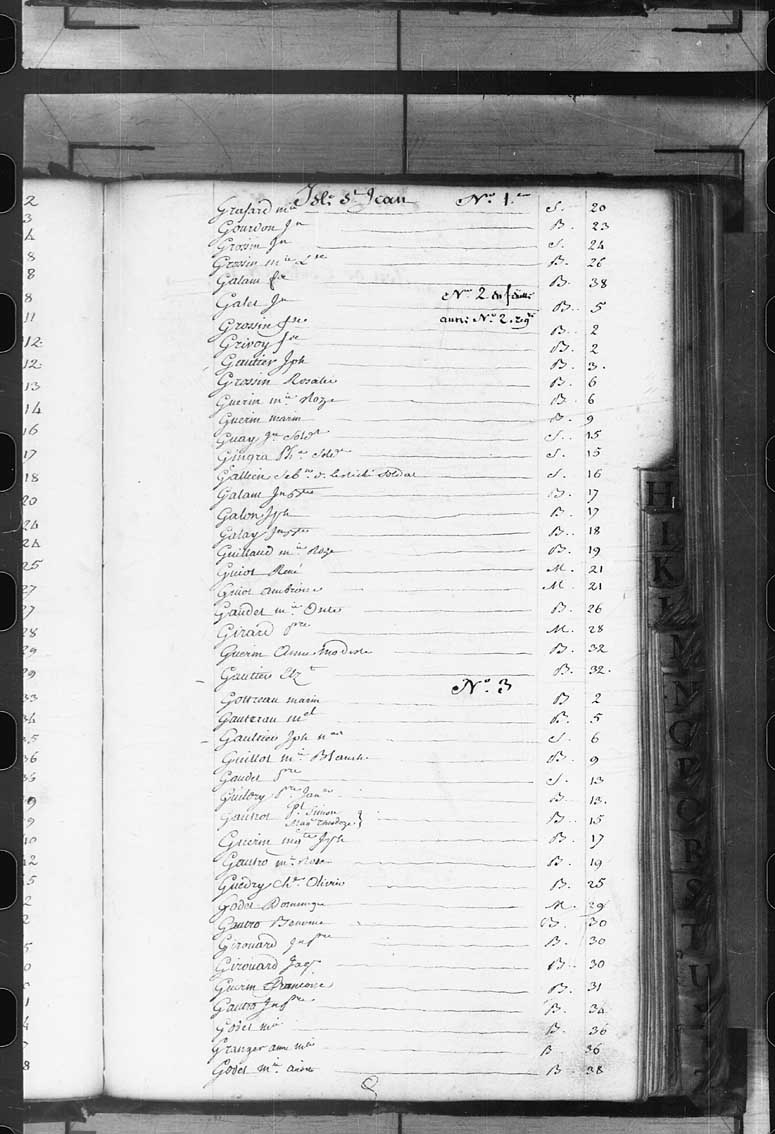 2
3
4
8
8
8
11
12
12
13
14
16
17
18
20
24
24
25
27
27
28
29
29
33
34
35
36
36
Isle St Jean No 1er
Grafard mie S. 20
Gourdon Jn B. 23
Grossin Jn S. 24
Grossin mie Lse B. 26
Galam fse B. 38
No 2 en feuille
Galet Jn B. 5
autre No 2. regt
Grossin fse B. 2
Grivoy fse B. 2
Gautier Jph B. 3.
Grossin Rosalie B. 6
Guerin mie Roze B. 6
Guerin marin B. 9
Guay Jn Soldt S. 15
Gingra Soldt S. 15
Gallien Sebn soldat S. 16
Galam Jn Bte B. 17
Galon Jph B. 17
Galay Jn Bte B. 18
Guillaud mie Roze B. 19
Guiot René M. 21
Guiot ambroise M. 21
Gaudet mie B. 26
Girard pre M. 28
Guerin Anne modeste B. 32
Gautier Elzt B. 32.
No 3
Gottreau marin B 2
Gautreau mel B. 5
Gaultier Jph S. 6
Guillot mie Blanche B. 9
Gaudet pre S. 13
Guilory B. 13.
Gautrot Simon
Theodoze B. 15
Guerin mgte Jph B. 17
Gautro mie Rose B. 19
Guedry Chs Olivier B. 25
Godet Dominique M. 29
Gautro Benome B. 30
Girouard Jn Bte B. 30
Girouard Jaqs B. 30
Guerin Francoise B. 31
Gautro Jn Bte B. 34
Godet mie B. 36
Granger anne mie B 36
Godet mie aimée B. 38
H
I
K
L
M
N
O
P
Q
R
S
T
U